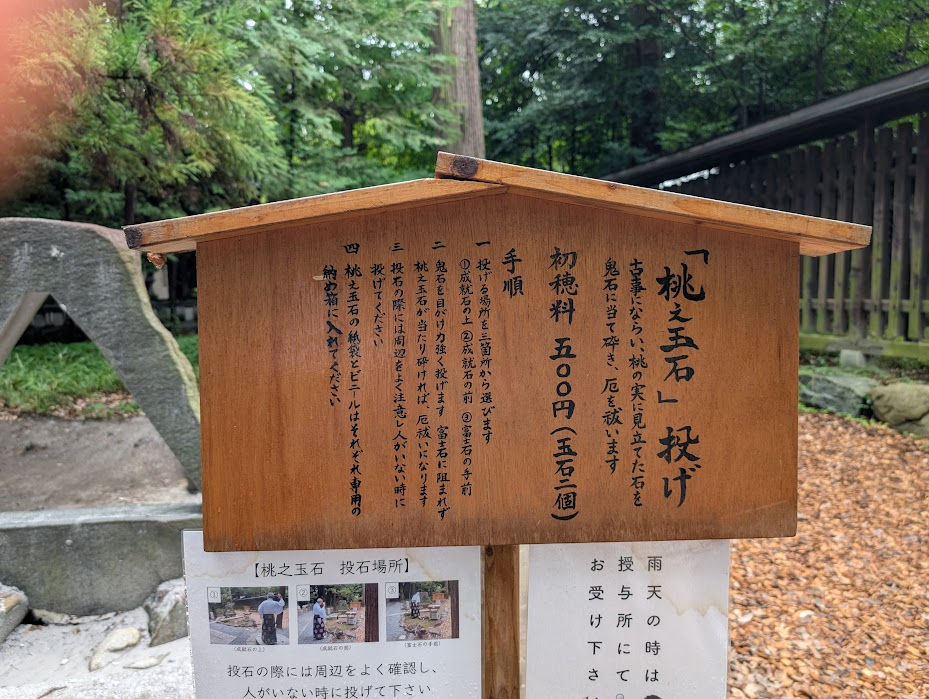 「桃之玉石」投げ
古事にならい、桃の実に見立てた石を
鬼石に当て砕き、厄を祓います
初穂料 五００円(玉石二個)
手順
一 投げる場所を三箇所から選びます
①成就石の上 ②成就石の前 ③富士石の手前
二 鬼石を目がけ力強く投げます 富士石に阻まれず
桃之玉石が当たり砕ければ、厄祓いになります
三 投石の際には周辺をよく注意し人がいない時に
投げてください
四 桃之玉石の紙袋とビニールはそれぞれ専用の
納め箱に入れてください
【桃之玉石 投石場所】
① ② ③
(成就石の上) (成就石の前) (富士石の手前)
投石の際には周辺をよく確認し、
人がいない時に投げて下さい
雨天の時は
授与所にて
お受け下さい